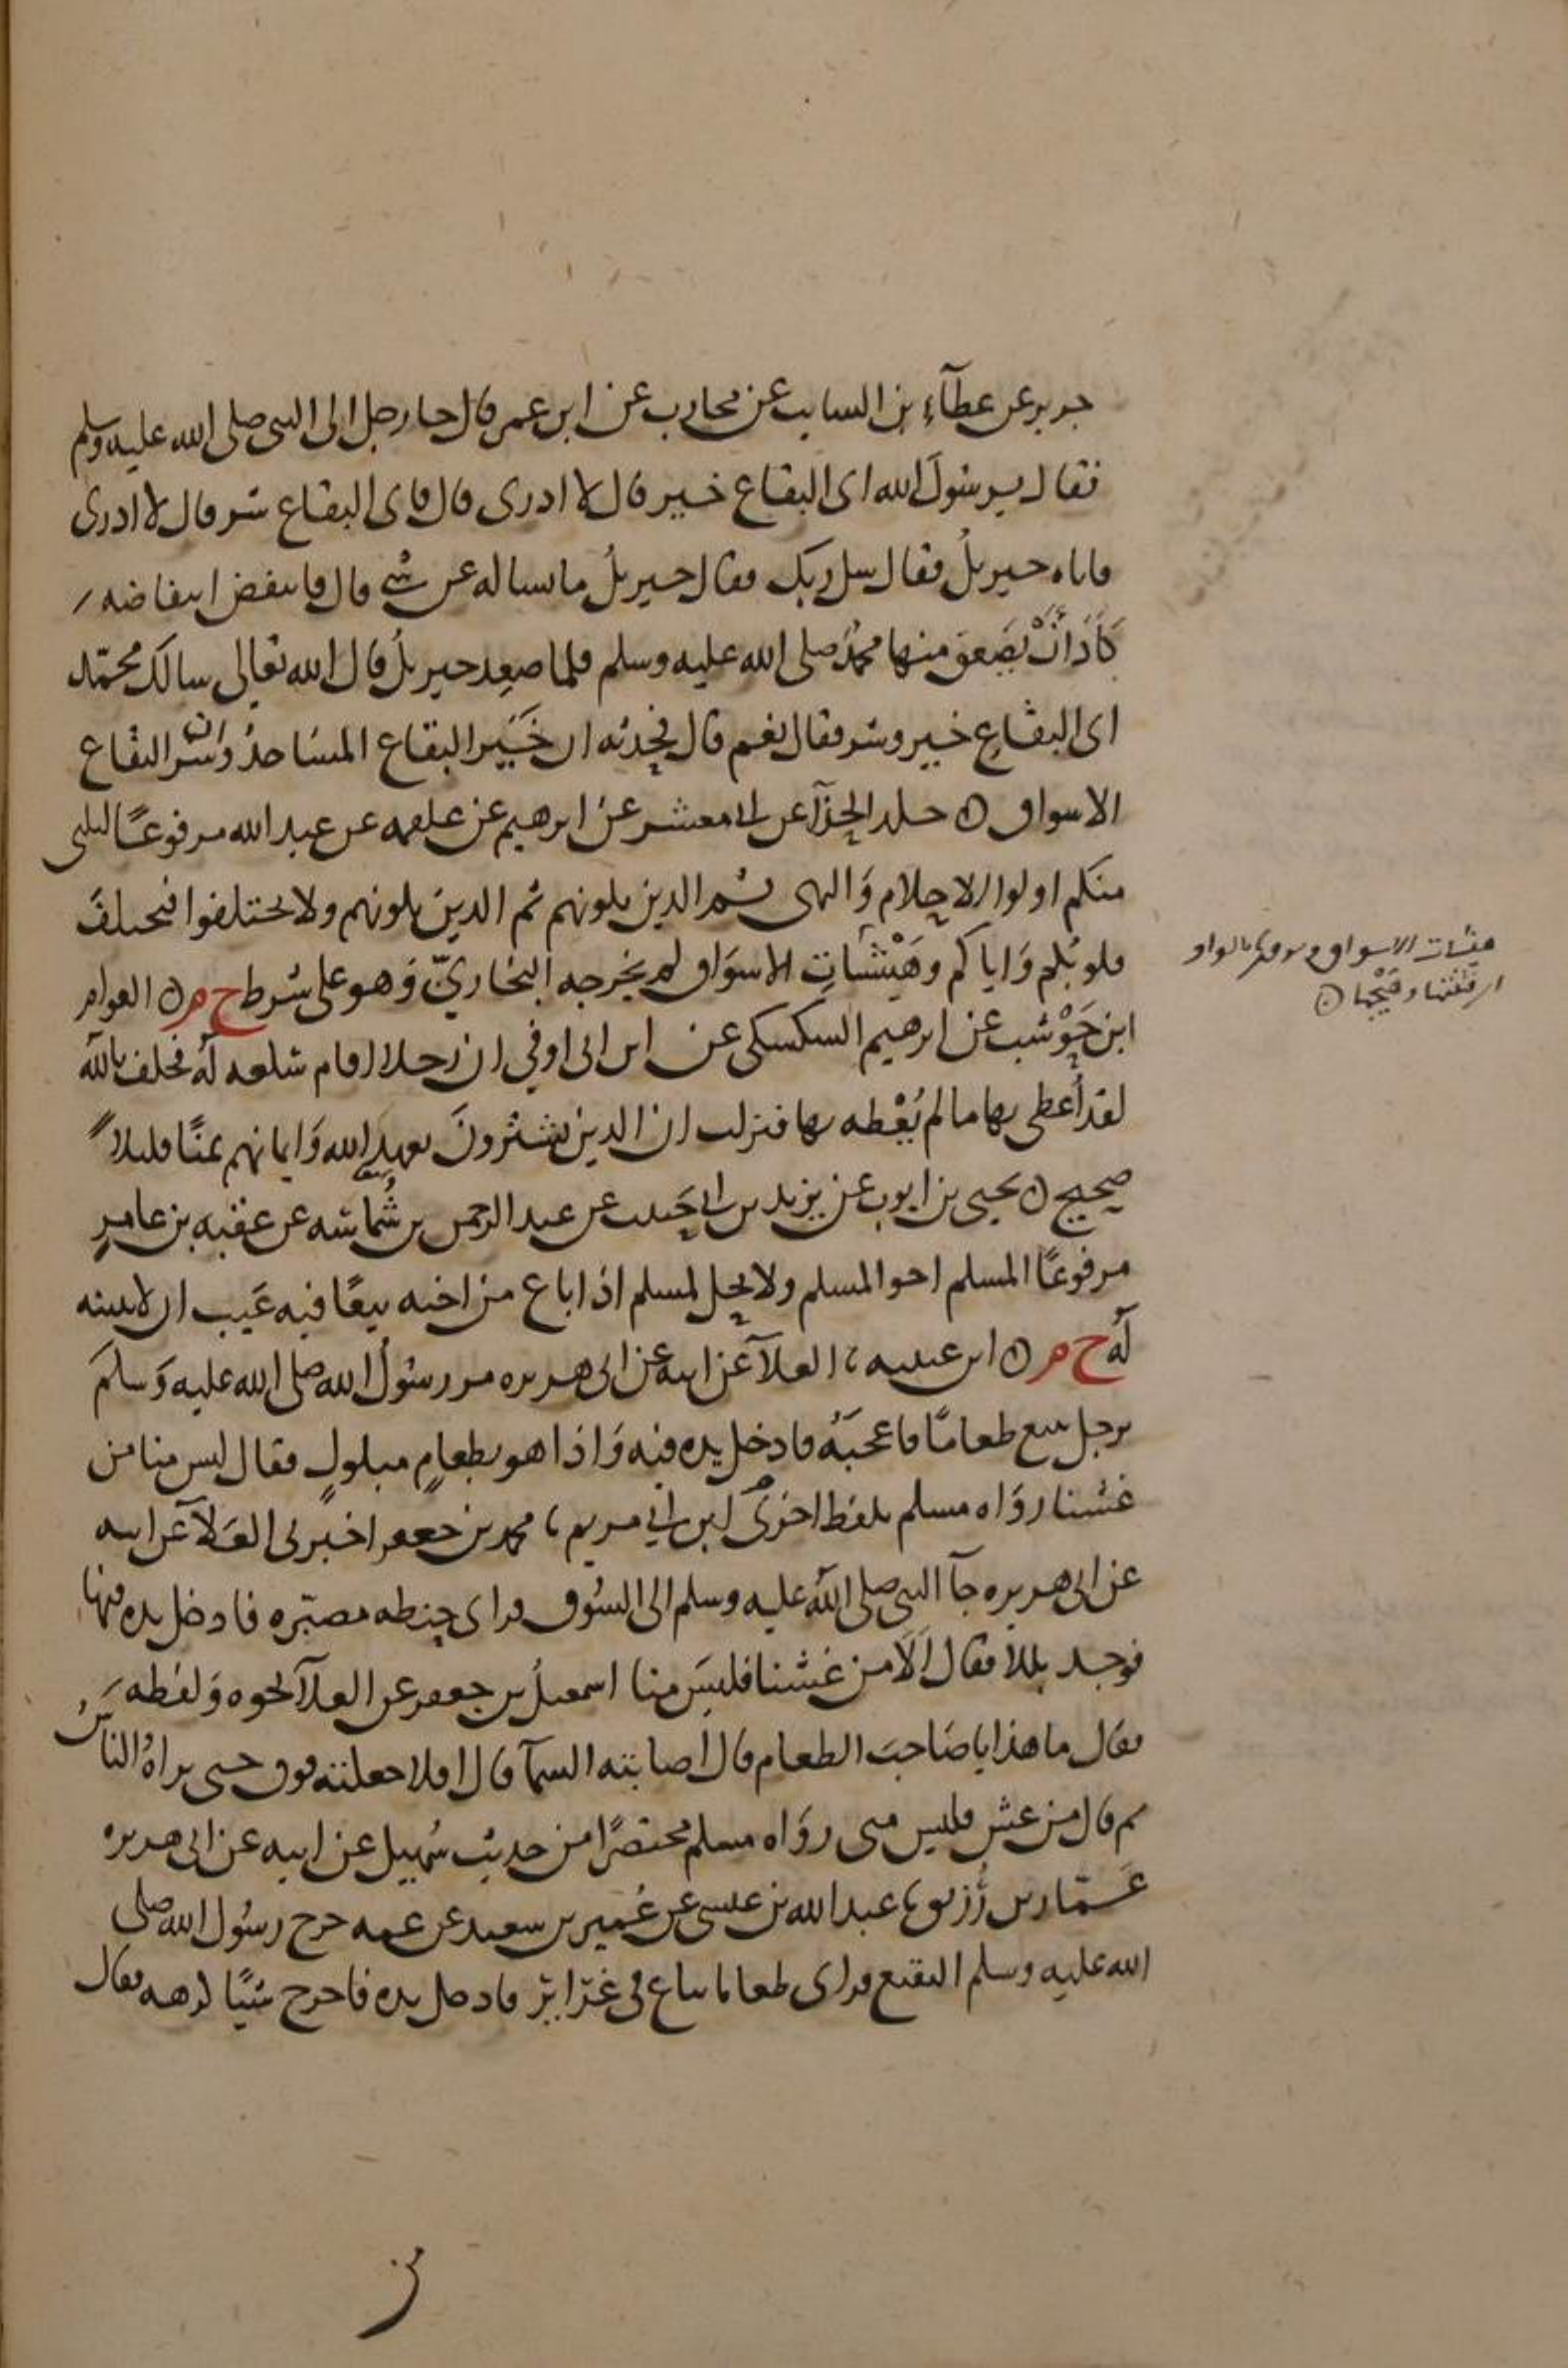 جرير عن عطآء بن السايب عن محارب عن ابن عمر قال جا رجل الى النبى صلى الله عليه وسلم
فقال يرسول الله اى البقاع خير قال لا ادرى قال فاى البقاع شر قال لا ادرى
فاتاه جبريل فقال سل ربك فقال جبريل ما نساله عن شى قال فانتفض انتفاضه
كاد ان يصعق منها محمد صلى الله عليه وسلم فلما صعد جبريل قال الله تعالى سالك محمد
اى البقاع خير وشر فقال نعم قال فحدثه ان خير البقاع المساجد وان شر البقاع
الاسواق ۞ خلد الحذآ عن ابى معشر عن ابرهيم عن علقمه عن عبد الله مرفوعًا ليلنى
منكم اولوا الاحلام وَالنهى ثم الذين يلونهم ثم الذين يلونهم ولا تختلفوا فتختلف
قلوبكم وَاياكم وهَيْشَاتِ الاسوَاق لم يخرجه البخاريّ وَهو على شرط خ م ۞ العوام
ابن حَوْشب عن ابرهيم السكسكى عن ابن ابى اوفى ان رجلا اقام سلعه له فحلف بالله
لقد اُعطى بها ما لم يُعْطه بها فنزلت ان الذين يشترونَ بعهد الله وَايمانهم ثمنًا قليلاً
صحيح ۞ يحيى بن ايوب عن يزيد بن ابى حَبيب عن عبد الرحمن بن شُماسه عن عقبه بن عامرٍ
مرفوعًا المسلم اخو المسلم ولا يحل لمسلم اذا باع من اخيه بيعًا فيه عَيب ان لا يبينه
لهُ خ م ۞ ابن عيينه ، العلآ عن ابيه عن ابى هريره مر رسُولُ الله صلى الله عليه وَسلمَ
برجل يبيع طعامًا فاعجبَهُ فادخل يده فيه وَاذا هو بطعامٍ مبلولٍ فقال ليس منا من
غشنا روَاه مسلم بلفظ اخرى ابن ابي مريم ، محمد بن جعفر اخبرنى العَلآ عن ابيه
عن ابى هريره جآ النبى صلى الله عليه وسلم الى السُوق فراى حنطه مصبّره فادخل يده فيها
فوجد بللا فقال اَلَا من غشنا فليسَ منا اسمعيلُ بن جعفر عن العلآ نحوه وَلفظه
فقال ما هذا يا صَاحبَ الطعام قال اَصابته السمآ قال افلا جعلته فوق حتى يراهُ الناسُ
ثم قال من غش فليس منى روَاه مسلم مختصرًا من حديث سُهيل عن ابيه عن ابى هريره
عَمّار بن رُزيق ، عبد الله بن عيسى عن عُمير بن سعيد عن عمه خرج رسُول الله صلى
الله عليه وسلم البقيع فراى طعاما يباع فى غرَايرَ فادخل يده فاخرج شيًا كرهه فقال
هيشات الاسواق بالواو
اى فتنتها وهَيْجها ۞